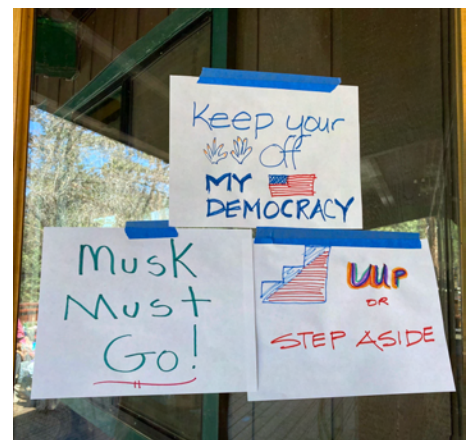 Keep your
off
MY
DEMOCRACY
Musk
Must
Go!
UUP
OR
STEP ASIDE